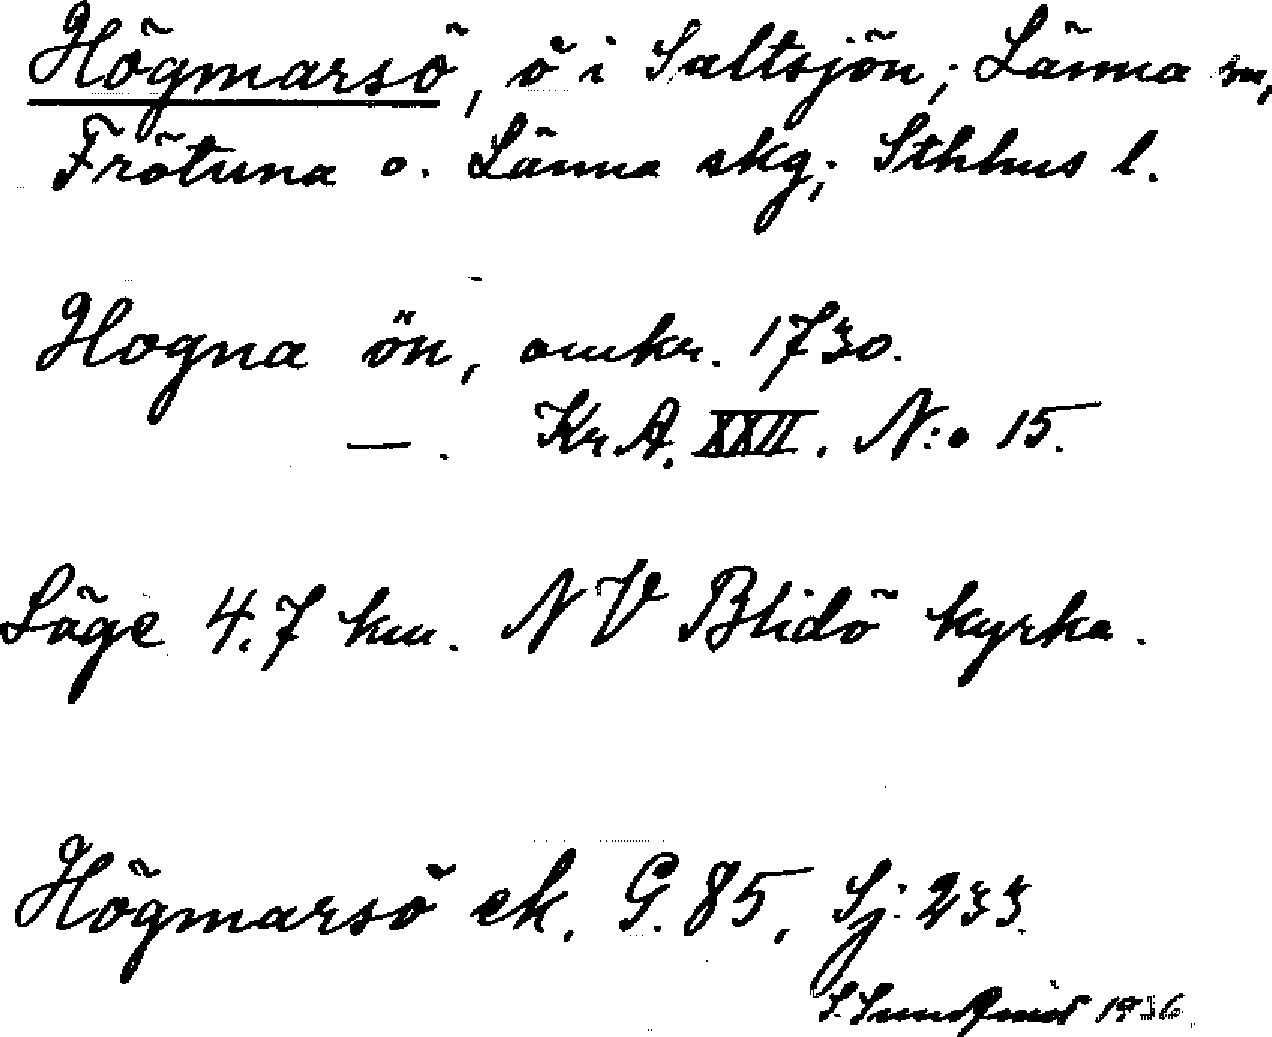 Högmarsö, ö i Saltsjön; Länna sn,
Frötuna o. Länna skg; Sthlms l.
Hogna ön, omkr. 1730.
—. Kr A. XXII. N:o 15.
Läge 4.7 km. NV Blidö kyrka.
Högmarsö ek. G. 85, Sj: 233.
S. Sundqvist 1936